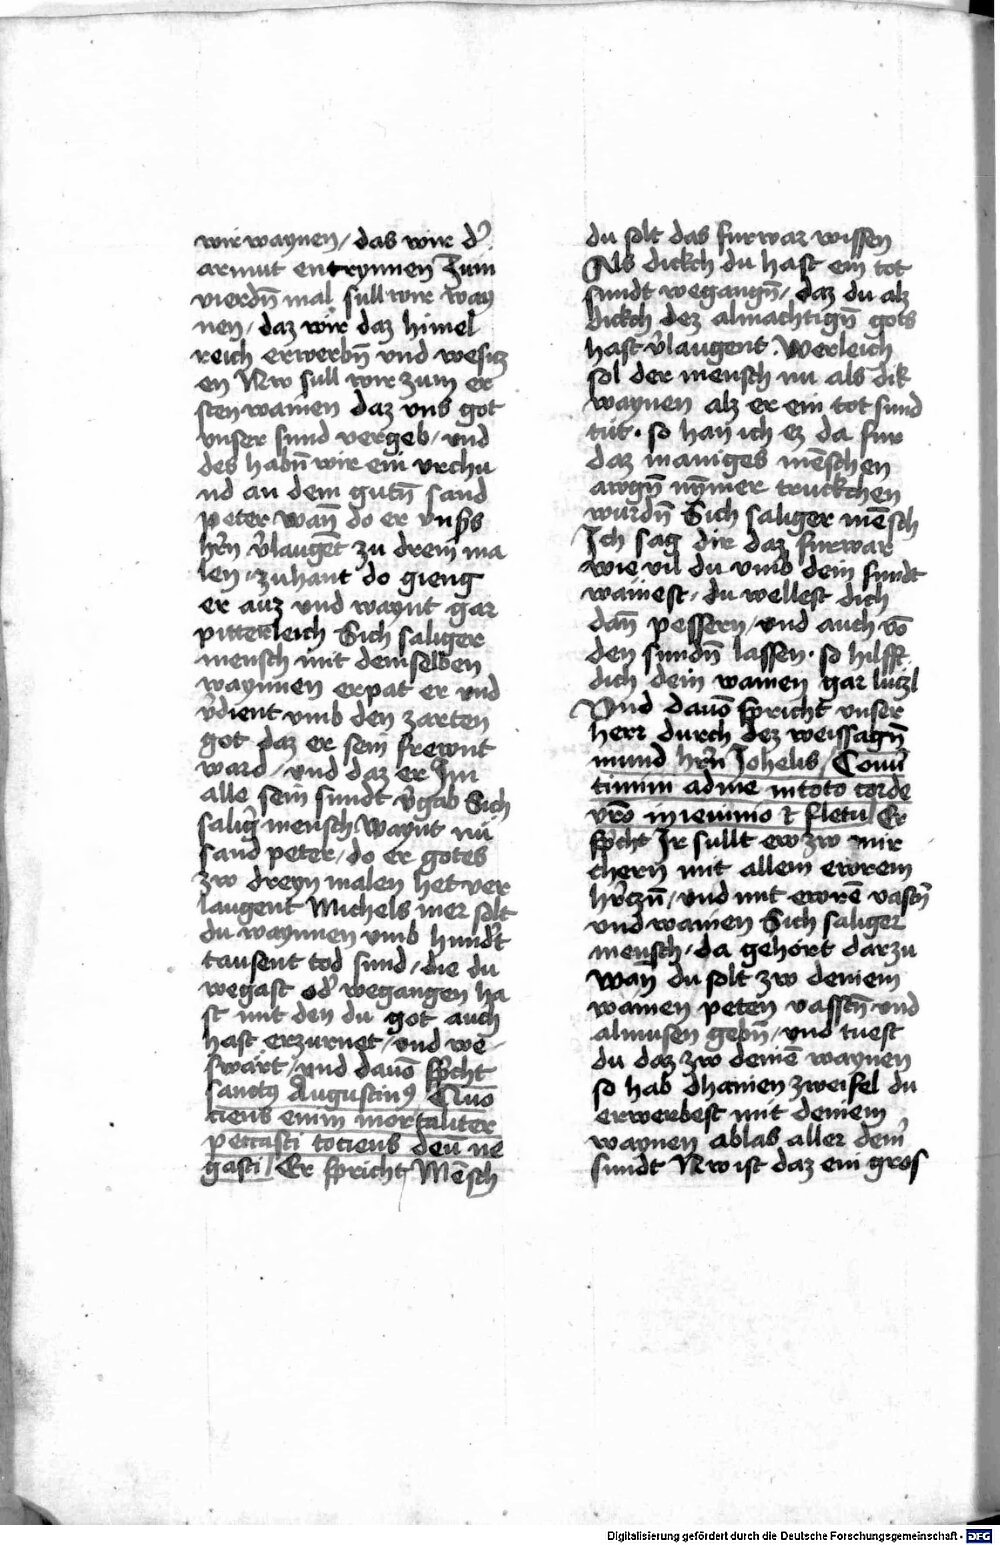 wir waynen / das wir d̕
armut entrynnen Zum
vierdn̄ mal sull wir way
nen / daz wir daz himel
reich erwerbn̄ vnd wesicz
en Nw sull wir zum er
sten wainen daz vns got
vnser sund vergeb / vnd
des habn̄ wir ein vrchu
nd an dem gutn̄ sand
peter wan̄ do er vnsʼs
hʼrn v̓laugēt zu drein ma
len / zuhant do gieng
er auz vnd waynt gar
pitterleich Sich saliger
mensch mit demselben
waynnen erpat er vnd
v̓dient vmb den zarten
got daz er sein frewnt
ward / vnd daz er Im
alle sein sundt v̓gab Sich
salig̓ mensch Waynt nu
sand peter / do er gotes
zw dreyn malen het ver
laugent Michels mer solt
du waynnen vmb hund̓t
tausent tod sund / die du
wegast od̓ wegangen ha
st mit den du got auch
hast erzurnet / vnd we
swart / vnd dauō sp̓cht
sanctꝰ Augustinꝰ Quo
ciens enim mortaliter
peccasti tociens deū ne
gasti / Er spricht Mēsch
du solt das furwar wissen
Als dickch du hast ein tot
sundt wegangn̄ / daz du alz
dickch dez almachtign̄ gots
hast v̓laugent . Werleich
sol der mensch nu als dik
waynen alz er ein tot sund
tut . so han ich ez da fur
daz maniges mēschen
awgn̄ nȳmer truckchen
wurdn̄ Sich saliger mēsch
Ich sag dir daz furwar
wie vil du vmb dein sundt
wainest / du wellest dich
dan̄ pessern / vnd auch vō
den sundn̄ lassen . so hilfft
dich dein wainen gar luczl
Vnd dauō spricht vnser
herr durch dez weissagn̄
mund hʼrn Johelis / Conu̓
timini ad me in toto corde
vr̄o in ieiunio ⁊ fletu / Er
sp̓cht Ir sullt ew zw mir
chern mit allem ewrem
hʼrczn̄ / vnd mit ewrē vastn̄
vnd wainen Sich saliger
mensch / da gehort darzu
Wan̄ du solt zw deinem
wainen peten vasstn̄ vnd
almusen gebn̄ / vnd tuest
du daz zw deinē waynen
so hab dhainen zweifel du
erwerbest mit deinem
waynen ablas aller deinʼ
sundt Nw ist daz ein gros
Digitalisierung gefördert durch die Deutsche Forschungsgemeinschaft - DFG